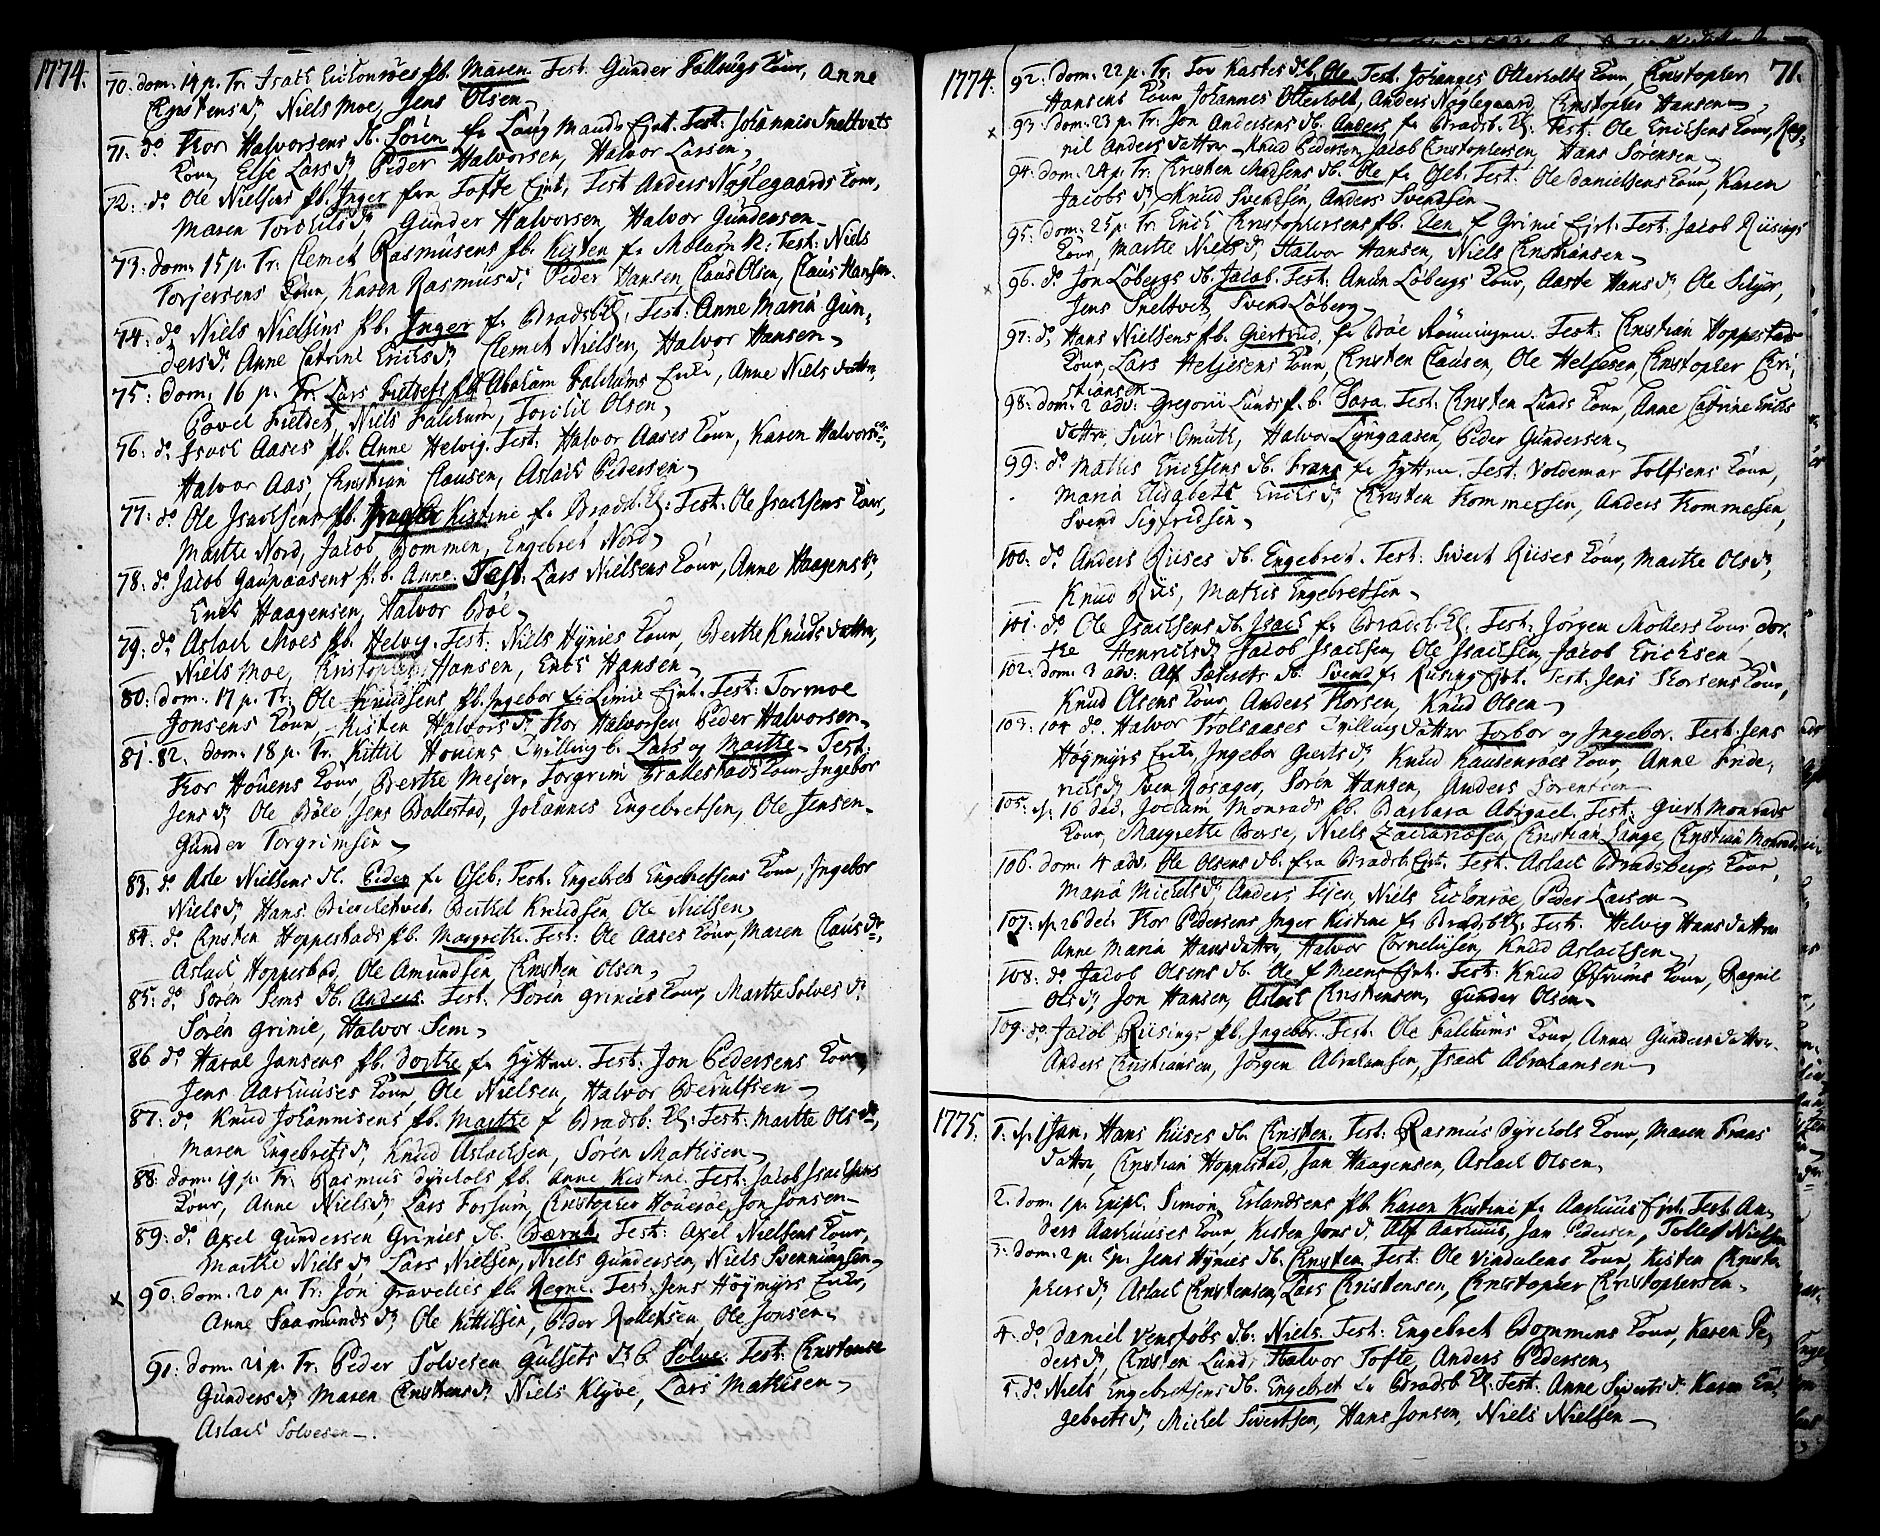 1774.
70. dom. 14 p. Tr. Isach Eichonroes pb. Maren Test. Gunder Follaugs Konr, Anne
Christensdr, Niels Moe, Jens Olsen
71. do Thor Halvorsens db. Sören fr Laug Mands Ejnt. Test. Johannis Sneltvets
Konr, Else Larsdr, Peder Halvorsen, Halvor Larsen,
72. do Ole Nielsens pb. Inger fra Tofte Ejnt, Test Anders Nøglegaards Konr,
Maren Torchildsdr, Gunder Halvorsen, Halvor Gundersen
73. dom. 15 p. Tr. Clemet Rasmusens pb. Kisten fr Melum Test: Niels
Torjersens Konr, Karen Rasmusdr, Peder Hansen, Claus Olsen, Claus Hansen
74. do Niels Nielsens pb. Inger fr. Bradsb. Test: Anne Maria Gun,
dersdr, Anne Catrine Ericksdr, Clemet Nielsen, Halvor Hansen
75. Dom. 16 p. Tr. Lars pb Abraham Falchums Enke, Anne Niels datter,
Povel Fieldet, Niels Falchum, Torchil Olsen,
76. do Isach Aases pb. Anne Helvig. Test. Halvor Aases Konr, Karen Halvorsdr,
Halvor Aas, Christian Clausen, Aslach Pedersen
77. do Ole Isachsens pb. Kistine fr. Bradsb. Test. Ole Isachsens Konr,
Marthe Nord, Jacob Bommen, Engebret Nord
78. do Jacob Gaupaasens p.b. Anne. Test. Lars Nielsens Konr, Anne Haagensdr,
Erich Haagensen, Halvor Böe
79. do Aslach Moes pb. Helvig. Test. Niels Hynies Konr, Berthe Knuds datter,
Niels Moe, Christopher Hansen, Erich Hansen
80. dom. 17 p. Tr. Ole Knudsens pb. Ingebor fr Limie Ejnt. Test. Tormoe
Jonsens Konr, Kisten Halvorsdr Thor Halvorsen Peder Halvorsen
81. 82. dom. 18 p. Tr. Kittil Houens Tvilling b. Lars og Marthe. Test.
Thor Houens Konr, Berthe Mejer, Torgrim Ballestads Konr Ingebor
Jensdr, Ole Böle Jens Ballestad, Johannes Engebretsen, Ole Jensen
Gunder Torgrimsen
83. do Asle Nielsens db. Peder fr Giseb: Test. Engebret Engebretsens Konr, Ingebor
Nielsdr, Hans Berthel Knudsen, Ole Nielsen,
84. do Christen Hoppestads pb. Margrethe. Test: Ole Aases Konr, Maren Clausdr,
Aslach Hoppestad, Ole Amundsen, Christen Olsen,
85. do Sören Sems Db. Anders. Test. Sören Grinies Konr, Marthe Solvesdr
Sören Grinie, Halvor Sem
86 do Haral Jansens pb. Dorthe fr Hytten. Test. Jon Pedersens Konr,
Jens Aarhuuses Konr, Ole Nielsen, Halvor Berulfsen
87. do Knud Johannesens pb. Marthe f Bradsb: Test: Marthe Olsdr,
Maren Engebretsdr, Knud Aslachsen, Sören Mathisen
88. dom. 19 p. Tr. Rasmus Dyrchols pb. Anne Kistine. Test: Jacob Isachsens
Konr, Anne Nielsdr, Lars Fossum, Christopher Houeroe, Jon Jonsen
89. do Axel Gundersen Grinies db. Barnt. Test: Axel Nielsens Konr,
Marthe Nielsdr, Lars Nielsen, Niels Gundersen, Niels Svenningsen
x 90. Dom. 20 p. Tr. Jon Gravelies pb. Regne. Test. Jens Höymyrs Enke,
Anne Saamundsdr, Ole Kittilsen, Peder Rollefsen, Ole Jonsen
91. dom. 21 p. Tr. Peder Solvesen Gulsets db. Solve. Test: Christense
Gundersdr Maren Christensdr Niels Klyve, Lars Mathisen
Aslach Solvesen
1774.
71.
92. Dom. 22 p. Tr. Tov Kastes db. Ole. Test. Johannes Otterholts Konr, Christopher
Hansens Konr Johannes Otterholt, Anders Nøglegaard, Christopher Hansen
x 93. dom. 23 p. Tr. Jon Andersens db. Anders fr Bradsb. Test. Ole Ericksens Konr, Rag,
nil Anders datter Knud Pedersen, Jacob Christophersen, Hans Sörensen
94. dom. 24 p. Tr. Christen Madsens db. Ole fr Giseb. Test. Ole Danielsens Konr, Karen
Jacobsdr, Knud Svendsen, Anders Svendsen
95. dom. 25 p. Tr. Erich Christophersens pb. Elen f Grinie Ejnt. Test. Jacob Riisings
Konr, Marthe Nielsdr, Halvor Hansen, Niels Christiansen
x 96. do Jon Löbergs db. Jacob. Test. Amun Löbergs Konr, Aaste Hansdr Ole Siljor,
Jens Sneltvet, Svend Löberg
97. do Hans Nielsens pb. Giertrud. fr Böe Rönningen. Test. Christian Hoppestads
Konr, Lars Heljesens Konr, Christen Clausen, Ole Heljesen, Christopher Chri,
stiansen
98. dom. 2 adv. Gregorii Lunds p.b. Sara. Test. Christen Lunds Konr, Anne Catrine Erichs
datter Siur Omuth, Halvor Lyngaasen, Peder Gundersen
99. do Mathis Ericksens db. Frans fr Hytten. Test. Voldemar Tolfsens Konr,
Maria Elisabeth Ericksdr, Christen Thommesen, Anders Thommesen,
Svend Sigfridsen
100. do Anders Riises db. Engebret. Test: Sivert Riises Konr, Marthe Olsdr,
Knud Riis, Mathis Engebretsen
101. do Ole Isachsens db. Isach fr Bradsb. Test. Jörgen Mollers Konr Dor,
the Henrichsdr, Jacob Isachsen, Ole Isachsen, Jacob Ericksen
102. dom. 3 adv. Alf Sætrets db. Svend fr Riising Ejnt. Test. Jens Thorsens Konr,
Knud Olsens Konr, Anders Thorsen, Knud Olsen
103. 104 do. Halvor Trolsaases Tvilling Datter Torbor og Ingebor. Test. Jens
Höymyrs Enke, Ingebor Giertsdr, Knud Hausenroes Konr, Anne Fride,
richsdr, Sven Rosager, Sören Hansen, Anders Sörensen
105. sp. 16 Dec. Jochum Monrads pb. Barbara Abigael. Test. Giert Monrads
Konr, Margrethe Borse, Niels Zachariasen, Christian Lange, Christian Monrad
106. dom. 4 adv. Ole Olsens db. fra Bradsb. Ejnt. Test. Aslach Bradsbergs Konr,
Maria Michelsdr, Anders Tisen, Niels Eichonroe, Peder Larsen
107. sp. 26 Dec. Thor Pedersens Inger Kistine fr Bradsb. Test. Helvig Hansdatter
Anne Maria Hansdatter, Halvor Corneliisen, Knud Aslachsen
108. do Jacob Olsens db. Ole f Meens Ejnt. Test: Knud Konr, Ragnil
Olsdr, Jon Hansen, Aslach Christensen, Gunder Olsen
109. do Jacob Riisings pb. Ingebor. Test. Ole Falchums Konr, Anne Gunders datter
Anders Christiansen, Jörgen Abrahamsen, Isach Abrahamsen
1775.
1. sp. 1 Jan. Hans Riises db. Christen. Test. Rasmus Dyrchols Konr, Maren Frans
datter, Christian Hoppestad, Jan Haagensen, Aslach Olsen,
2. dom. 1 p. Epiph. Simon Erlandsens pb. Karen Kistine fr Aarhuus Ejnt. Test. An,
ders Aarhuuses Konr, Kisten Jonsdr, Alf Aarhuus, Jan Pedersen, Tollef Nielsen
3. dom. 2 p. Ep. Jens Hynies db. Christen Test. Ole Vindalens Konr, Kisten Christo,
phersdr, Aslach Christensen, Lars Christensen, Christopher Christophersen
4. do. Daniel Venstöbs db. Niels. Test. Engebret Bommens Konr, Karen Pe,
dersdr, Christen Lund, Halvor Tofte, Anders Pedersen,
5. do Niels Engebretsens db. Engebret fr Bradsb. Test. Anne Sivertsdr Karen En,
gebretsdr, Michel Sivertsen, Hans Jonsen, Niels Nielsen